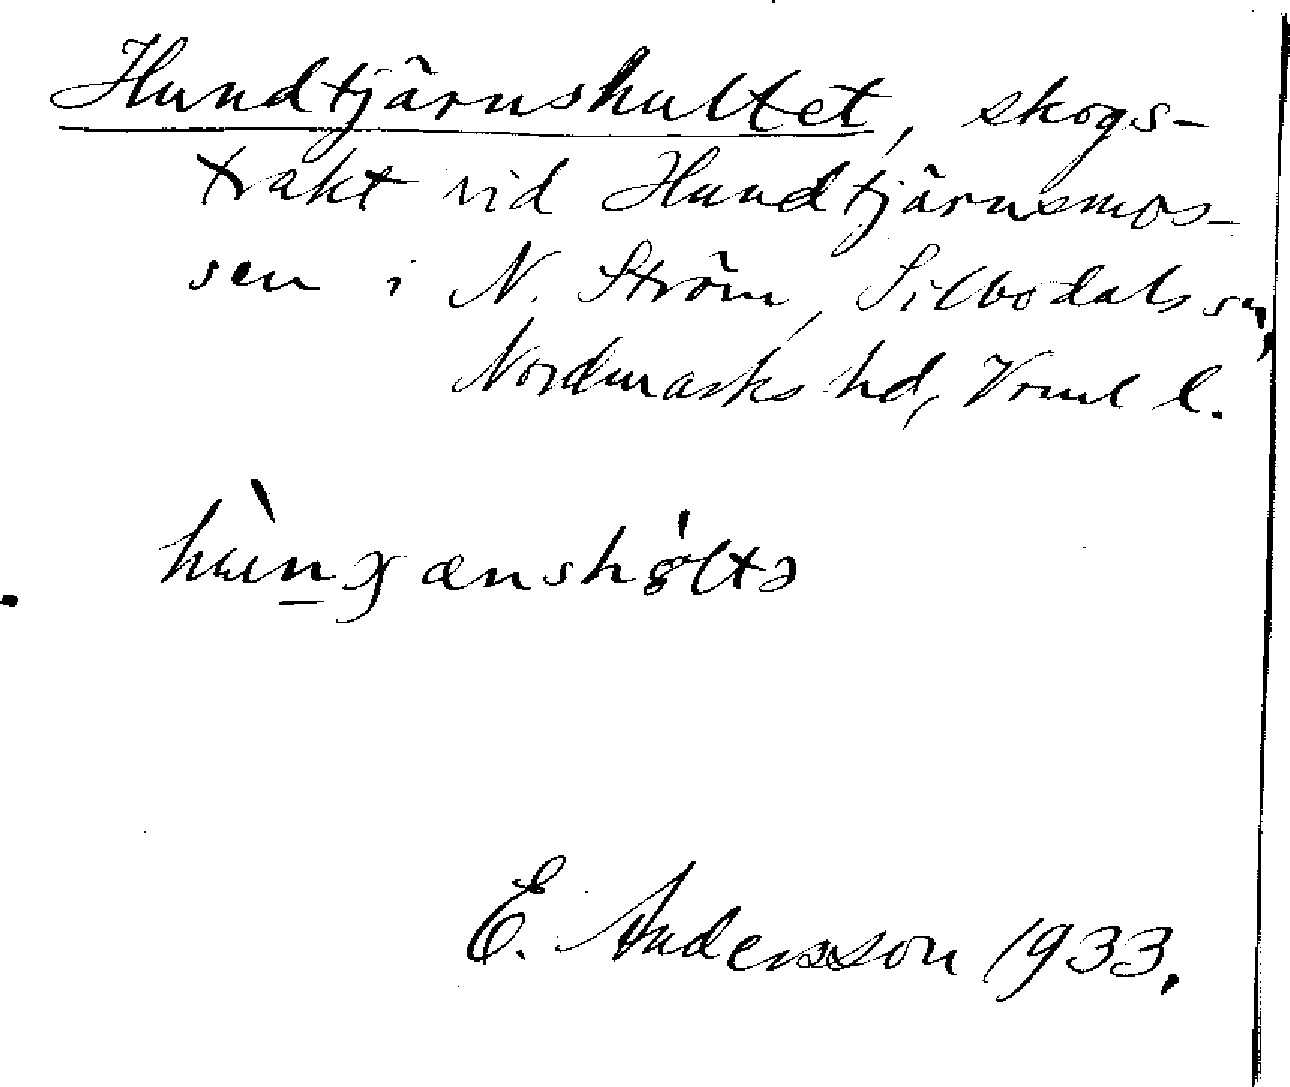 Hundtjärnshultet, skogs-
trakt vid Hundtjärnsmos-
sen i N. Ström, Silbodals sn,
Nordmarks hd, Vrml l.
E. Andersson 1933.